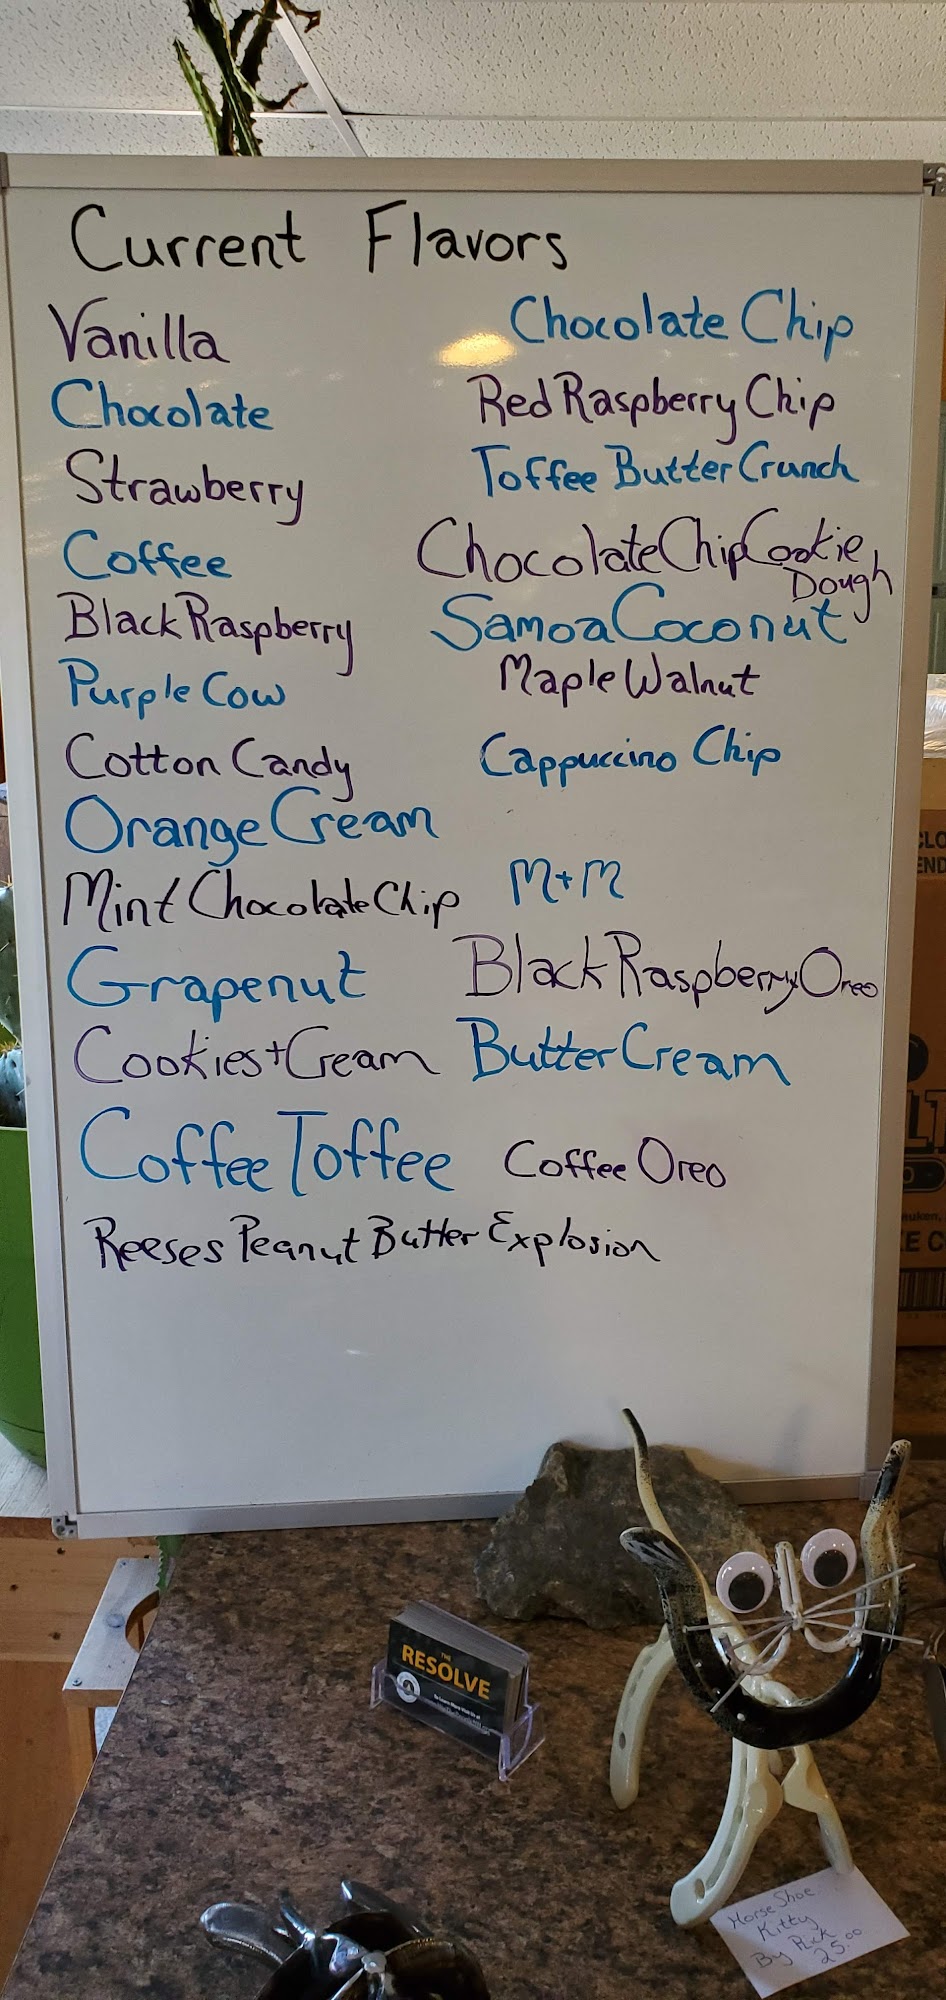 Current Flavors
Vanilla
Chocolate
Strawberry
Coffee
Black Raspberry
Purple Cow
Cotton Candy
Orange Cream
Mint Chocolate Chip
Grapenut
Cookies + Cream
Coffee Toffee
Reeses Peanut Butter Explosion
Chocolate Chip
Red Raspberry Chip
Toffee Butter Crunch
Chocolate Chip Cookie
Dough
Samoa Coconut
Maple Walnut
Cappuccino Chip
M+M
Black Raspberry Oreo
Butter Cream
Coffee Oreo
THE
RESOLVE
Horse Shoe
Kitty
By
25.00